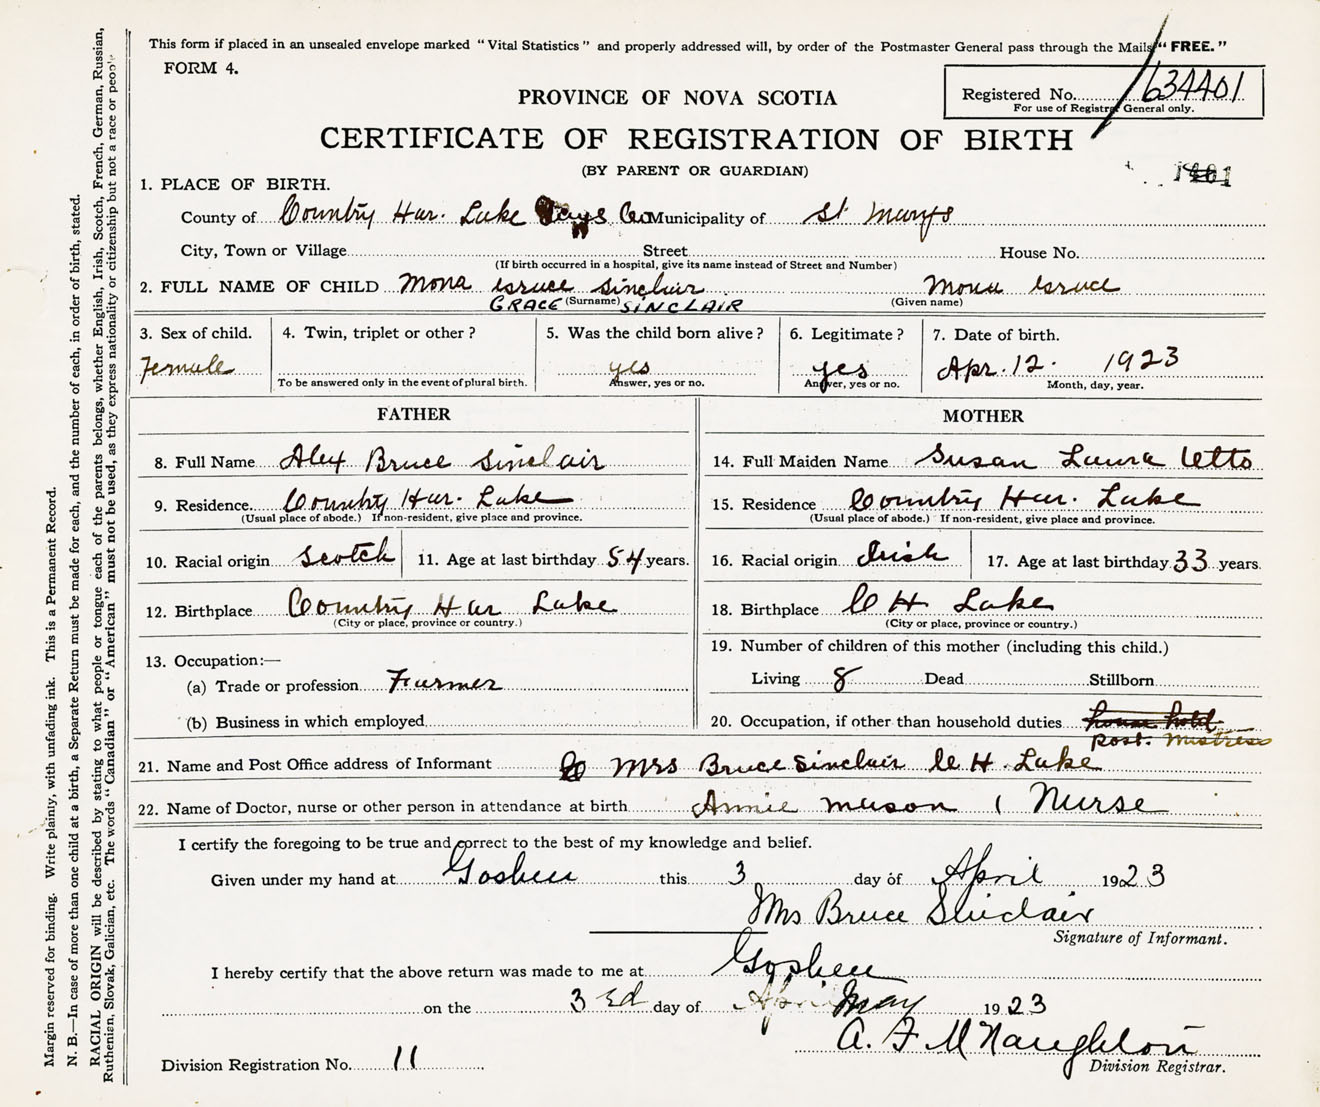 This form if placed in an unsealed envelope marked "Vital Statistics" and properly addressed will, by order of the Postmaster General pass through the Mails "FREE."
FORM 4.
Registered No. 634401
For use of Registrar General only.
PROVINCE OF NOVA SCOTIA
CERTIFICATE OF REGISTRATION OF BIRTH
(BY PARENT OR GUARDIAN)
1. PLACE OF BIRTH.
County of Country Har. Lake Co Municipality of St Marys
City, Town or Village Street House No.
(If birth occurred in a hospital, give its name instead of Street and Number)
2. FULL NAME OF CHILD Mona Gruce Sinclair Mona Gruce
GRACE (Surname) SINCLAIR (Given name)
3. Sex of child. 4. Twin, triplet or other? 5. Was the child born alive? 6. Legitimate? 7. Date of birth.
Female yes yes Apr. 12. 1923
To be answered only in the event of plural birth. Answer, yes or no. Answer, yes or no. Month, day, year.
FATHER
8. Full Name Alex Bruce Sinclair
9. Residence Country Har. Lake
(Usual place of abode.) If non-resident, give place and province.
10. Racial origin Scotch 11. Age at last birthday 54 years.
12. Birthplace Country Har Lake
(City or place, province or country.)
13. Occupation:—
(a) Trade or profession Farmer
(b) Business in which employed
MOTHER
14. Full Maiden Name Susan Laura
15. Residence Country Har. Lake
(Usual place of abode.) If non-resident, give place and province.
16. Racial origin Irish 17. Age at last birthday 33 years.
18. Birthplace C H Lake
(City or place, province or country.)
19. Number of children of this mother (including this child.)
Living 8 Dead Stillborn
20. Occupation, if other than household duties house hold
Post. Mistress
21. Name and Post Office address of Informant Mrs Bruce Sinclair C H. Lake
22. Name of Doctor, nurse or other person in attendance at birth Annie Mason ( Nurse
I certify the foregoing to be true and correct to the best of my knowledge and belief.
Given under my hand at Goshen this 3 day of April 1923
Mrs Bruce Sinclair
Signature of Informant.
I hereby certify that the above return was made to me at Goshen
on the 3rd day of April May 1923
A. F. McNaughton
Division Registrar.
Division Registration No. 11
Margin reserved for binding. Write plainly, with unfading ink. This is a Permanent Record.
N. B.—In case of more than one child at a birth, a Separate Return must be made for each, and the number of each, in order of birth, stated.
RACIAL ORIGIN will be described by stating to what people or tongue each of the parents belongs, whether English, Irish, Scotch, French, German, Russian,
Ruthenian, Slovak, Galician, etc. The words "Canadian" or "American" must not be used, as they express nationality or citizenship but not a race or people